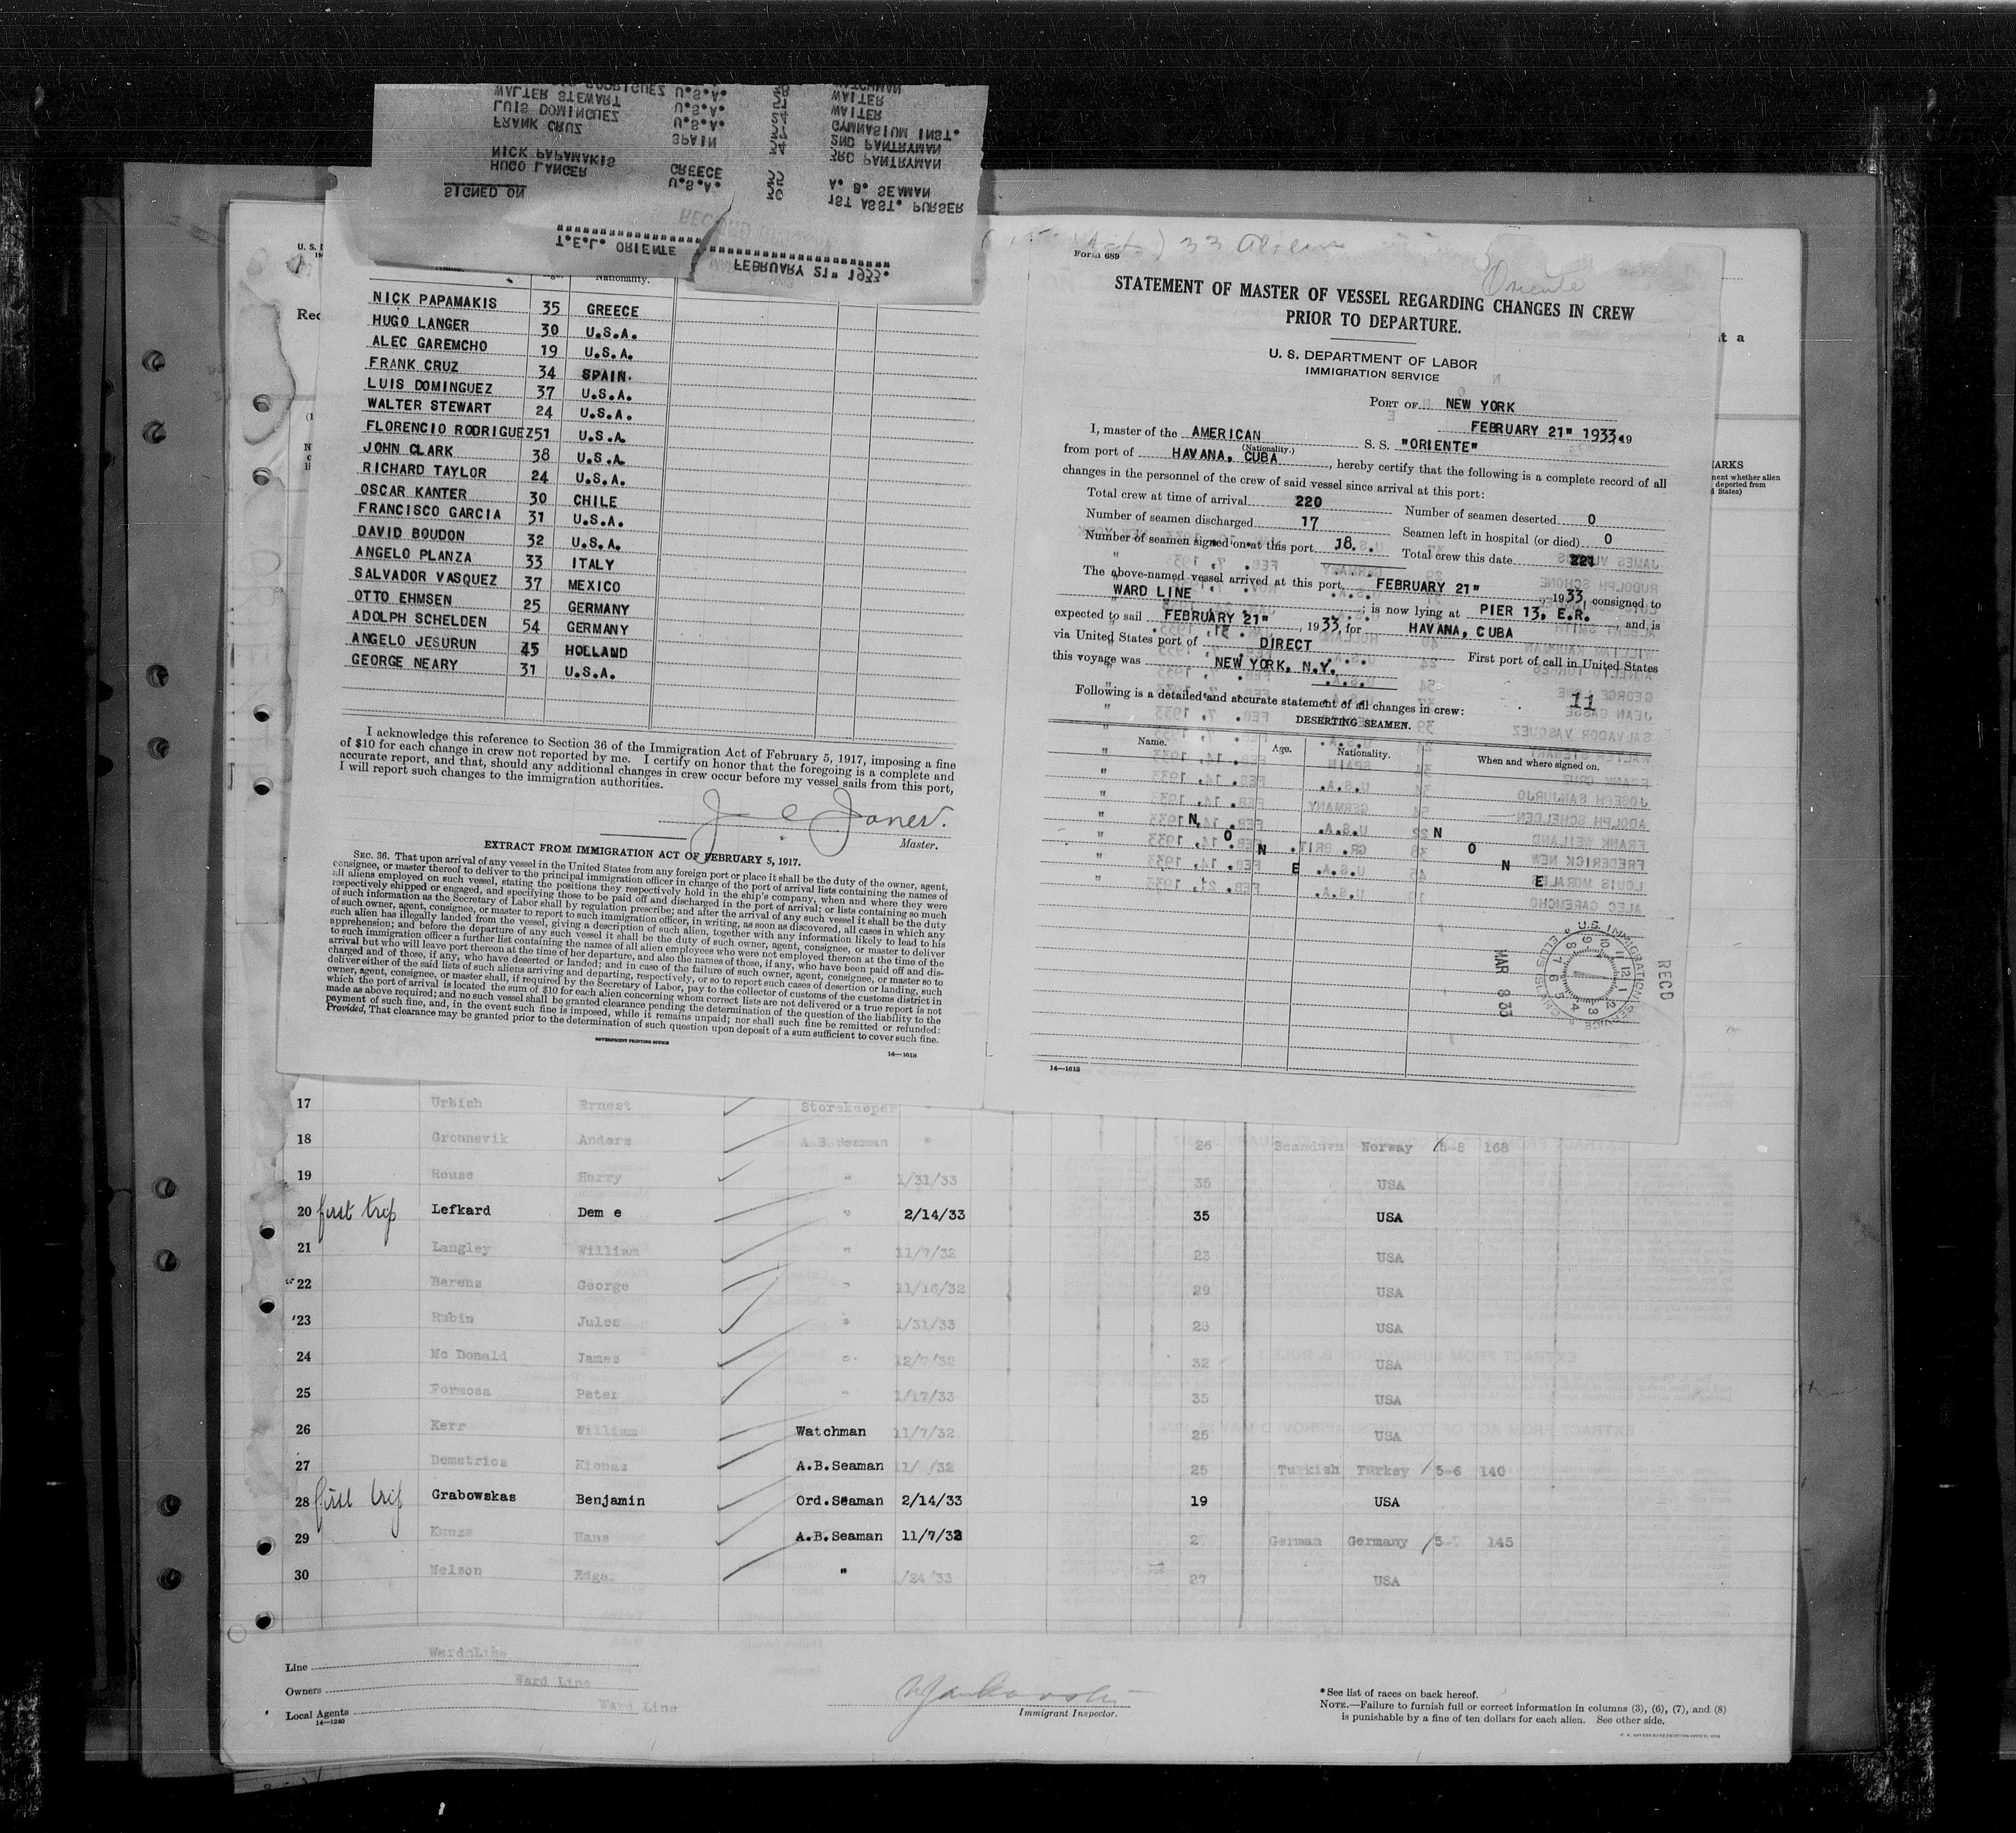 T.E.L. ORIENTE
FEBRUARY 21" 1933.
SIGNED ON
HUGO LANGER U.S.A. 1ST ASST. PURSER
NICK PAPAMAKIS GREECE A. B. SEAMAN
3RD PANTRYMAN
FRANK CRUZ SPAIN 2ND PANTRYMAN
LUIS DOMINGUEZ U.S.A. GYMNASIUM INST.
WALTER STEWART U.S.A. WAITER
RODRIGUEZ U.S.A. WAITER
WATCHMAN
Nationality.
NICK PAPAMAKIS 35 GREECE
HUGO LANGER 30 U.S.A.
ALEC GAREMCHO 19 U.S.A.
FRANK CRUZ 34 SPAIN.
LUIS DOMINGUEZ 37 U.S.A.
WALTER STEWART 24 U.S.A.
FLORENCIO RODRIGUEZ 51 U.S.A.
JOHN CLARK 38 U.S.A.
RICHARD TAYLOR 24 U.S.A.
OSCAR KANTER 30 CHILE
FRANCISCO GARCIA 31 U.S.A.
DAVID BOUDON 32 U.S.A.
ANGELO PLANZA 33 ITALY
SALVADOR VASQUEZ 37 MEXICO
OTTO EHMSEN 25 GERMANY
ADOLPH SCHELDEN 54 GERMANY
ANGELO JESURUN 45 HOLLAND
GEORGE NEARY 31 U.S.A.
I acknowledge this reference to Section 36 of the Immigration Act of February 5, 1917, imposing a fine
of $10 for each change in crew not reported by me. I certify on honor that the foregoing is a complete and
accurate report, and that, should any additional changes in crew occur before my vessel sails from this port,
I will report such changes to the immigration authorities.
J C Jones.
Master.
EXTRACT FROM IMMIGRATION ACT OF FEBRUARY 5, 1917.
SEC. 36. That upon arrival of any vessel in the United States from any foreign port or place it shall be the duty of the owner, agent,
consignee, or master thereof to deliver to the principal immigration officer in charge of the port of arrival lists containing the names of
all aliens employed on such vessel, stating the positions they respectively hold in the ship's company, when and where they were
respectively shipped or engaged, and specifying those to be paid off and discharged in the port of arrival; or lists containing so much
of such information as the Secretary of Labor shall by regulation prescribe; and after the arrival of any such vessel it shall be the duty
of such owner, agent, consignee, or master to report to such immigration officer, in writing, as soon as discovered, all cases in which any
such alien has illegally landed from the vessel, giving a description of such alien, together with any information likely to lead to his
apprehension; and before the departure of any such vessel it shall be the duty of such owner, agent, consignee, or master to deliver
to such immigration officer a further list containing the names of all alien employees who were not employed thereon at the time of the
arrival but who will leave port thereon at the time of her departure, and also the names of those, if any, who have been paid off and dis-
charged and of those, if any, who have deserted or landed; and in case of the failure of such owner, agent, consignee, or master so to
deliver either of the said lists of such aliens arriving and departing, respectively, or so to report such cases of desertion or landing, such
owner, agent, consignee, or master shall, if required by the Secretary of Labor, pay to the collector of customs of the customs district in
which the port of arrival is located the sum of $10 for each alien concerning whom correct lists are not delivered or a true report is not
made as above required; and no such vessel shall be granted clearance pending the determination of the question of the liability to the
payment of such fine, and, in the event such fine is imposed, while it remains unpaid; nor shall such fine be remitted or refunded:
Provided, That clearance may be granted prior to the determination of such question upon deposit of a sum sufficient to cover such fine.
GOVERNMENT PRINTING OFFICE
14—1613
Form 689
Oriente
STATEMENT OF MASTER OF VESSEL REGARDING CHANGES IN CREW
PRIOR TO DEPARTURE.
U. S. DEPARTMENT OF LABOR
IMMIGRATION SERVICE
PORT OF NEW YORK
FEBRUARY 21" 1933, 19
I, master of the AMERICAN S. S. "ORIENTE"
(Nationality.)
from port of HAVANA, CUBA, hereby certify that the following is a complete record of all
changes in the personnel of the crew of said vessel since arrival at this port:
Total crew at time of arrival 220 Number of seamen deserted 0
Number of seamen discharged 17 Seamen left in hospital (or died) 0
Number of seamen signed on at this port 18. Total crew this date 221
The above-named vessel arrived at this port FEBRUARY 21", 1933, consigned to
WARD LINE; is now lying at PIER 13, E.R., and is
expected to sail FEBRUARY 21", 1933, for HAVANA, CUBA
via United States port of DIRECT First port of call in United States
this voyage was NEW YORK, N.Y.
Following is a detailed and accurate statement of all changes in crew: 11
DESERTING SEAMEN.
Name. Age. Nationality. When and where signed on.
N O N E N O N E
RECD
U.S. IMMIGRATION SERVICE ELLIS ISLAND
MAR 8 33
14—1613
17 Urbich Ernest Storekeeper "
18 Gronnevik Anders A.B.Seaman " 26 Scandnvn Norway 5-8 168
19 Rouse Harry " 1/31/33 35 USA
20 first trip Lefkard Dem e " 2/14/33 35 USA
21 Langley William " 11/7/32 23 USA
22 Berens George " 11/16/32 29 USA
23 Rubin Jules " 1/31/33 23 USA
24 Mc Donald James " 12/7/32 32 USA
25 Formosa Peter " 1/17/33 35 USA
26 Kerr William Watchman 11/7/32 26 USA
27 Demetrios Kionas A.B.Seaman 11/ /32 25 Turkish Turkey 5-6 140
28 first trip Grabowskas Benjamin Ord.Seaman 2/14/33 19 USA
29 Kunze Hans A.B.Seaman 11/7/32 2 German Germany 5- 145
30 Nelson Edgar " 1/24/33 27 USA
Line Ward Line
Owners Ward Line
Local Agents Ward Line
14—1240
Immigrant Inspector.
* See list of races on back hereof.
NOTE.—Failure to furnish full or correct information in columns (3), (6), (7), and (8)
is punishable by a fine of ten dollars for each alien. See other side.